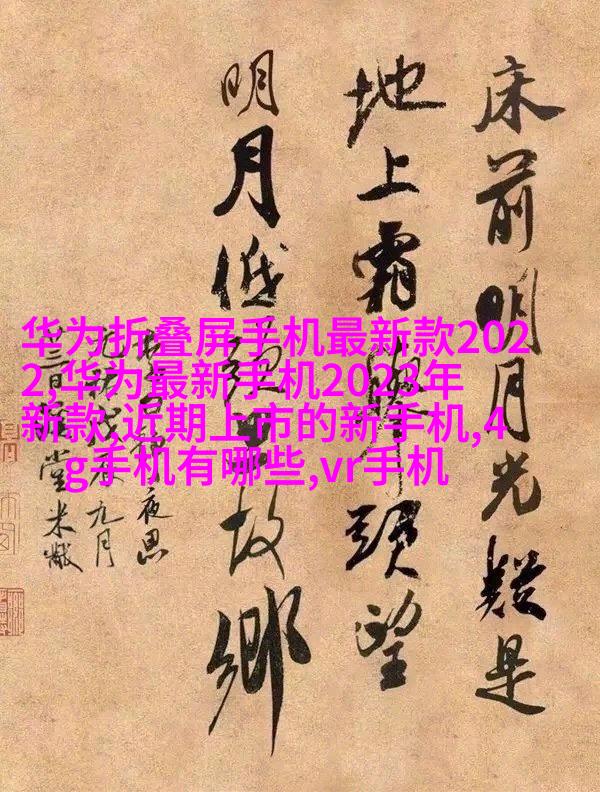 床前明月光疑是
地上霜舉頭望
明月低頭思故鄉
夜思
九月
三日堂米黻
华为折叠屏手机最新款202
2,华为最新手机2023年
新款,近期上市的新手机,4
g手机有哪些,vr手机